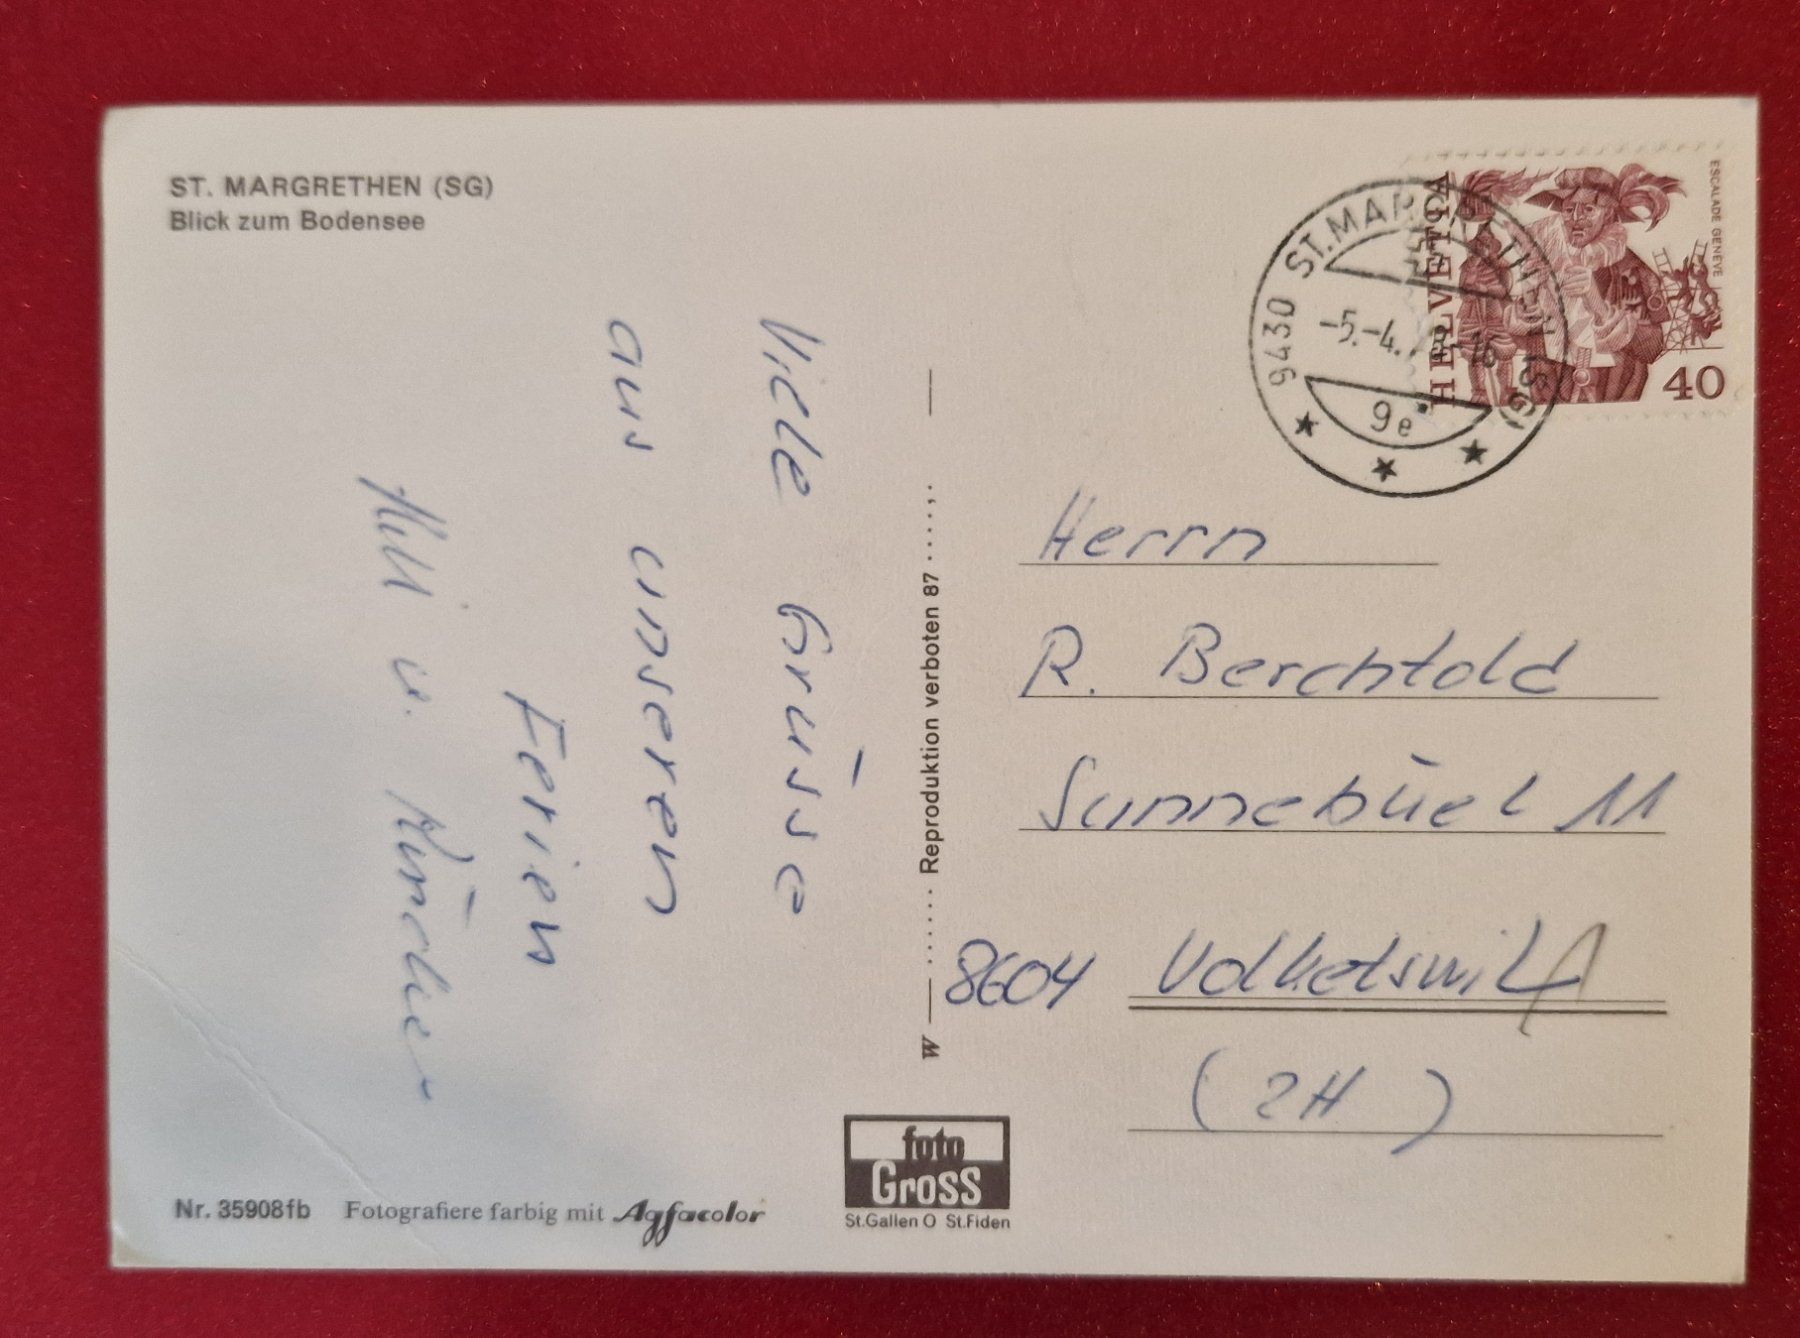 ST. MARGRETHEN (SG)
Blick zum Bodensee
Viele Grüsse
aus unseren
Ferien
u.
Reproduktion verboten 87
W
HELVETIA
ESCALADE GENÈVE
40
9430 ST. MARGRETHEN (SG)
-5.-4.
9e
Herrn
R. Berchtold
Sunnebüel 11
8604 Volketswil
(ZH)
foto
Gross
St.Gallen O St.Fiden
Nr. 35908fb Fotografiere farbig mit Agfacolor